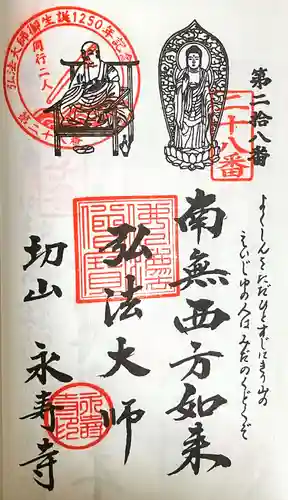 弘法大師御生誕1250年記念
同行二人
第二十八番
第二拾八番
二十八番
よくしんを ただひとすじに きり山の
えいじゅの人は みだのくどくぞ
南無西方如来
弘法大師
切山 永寿寺